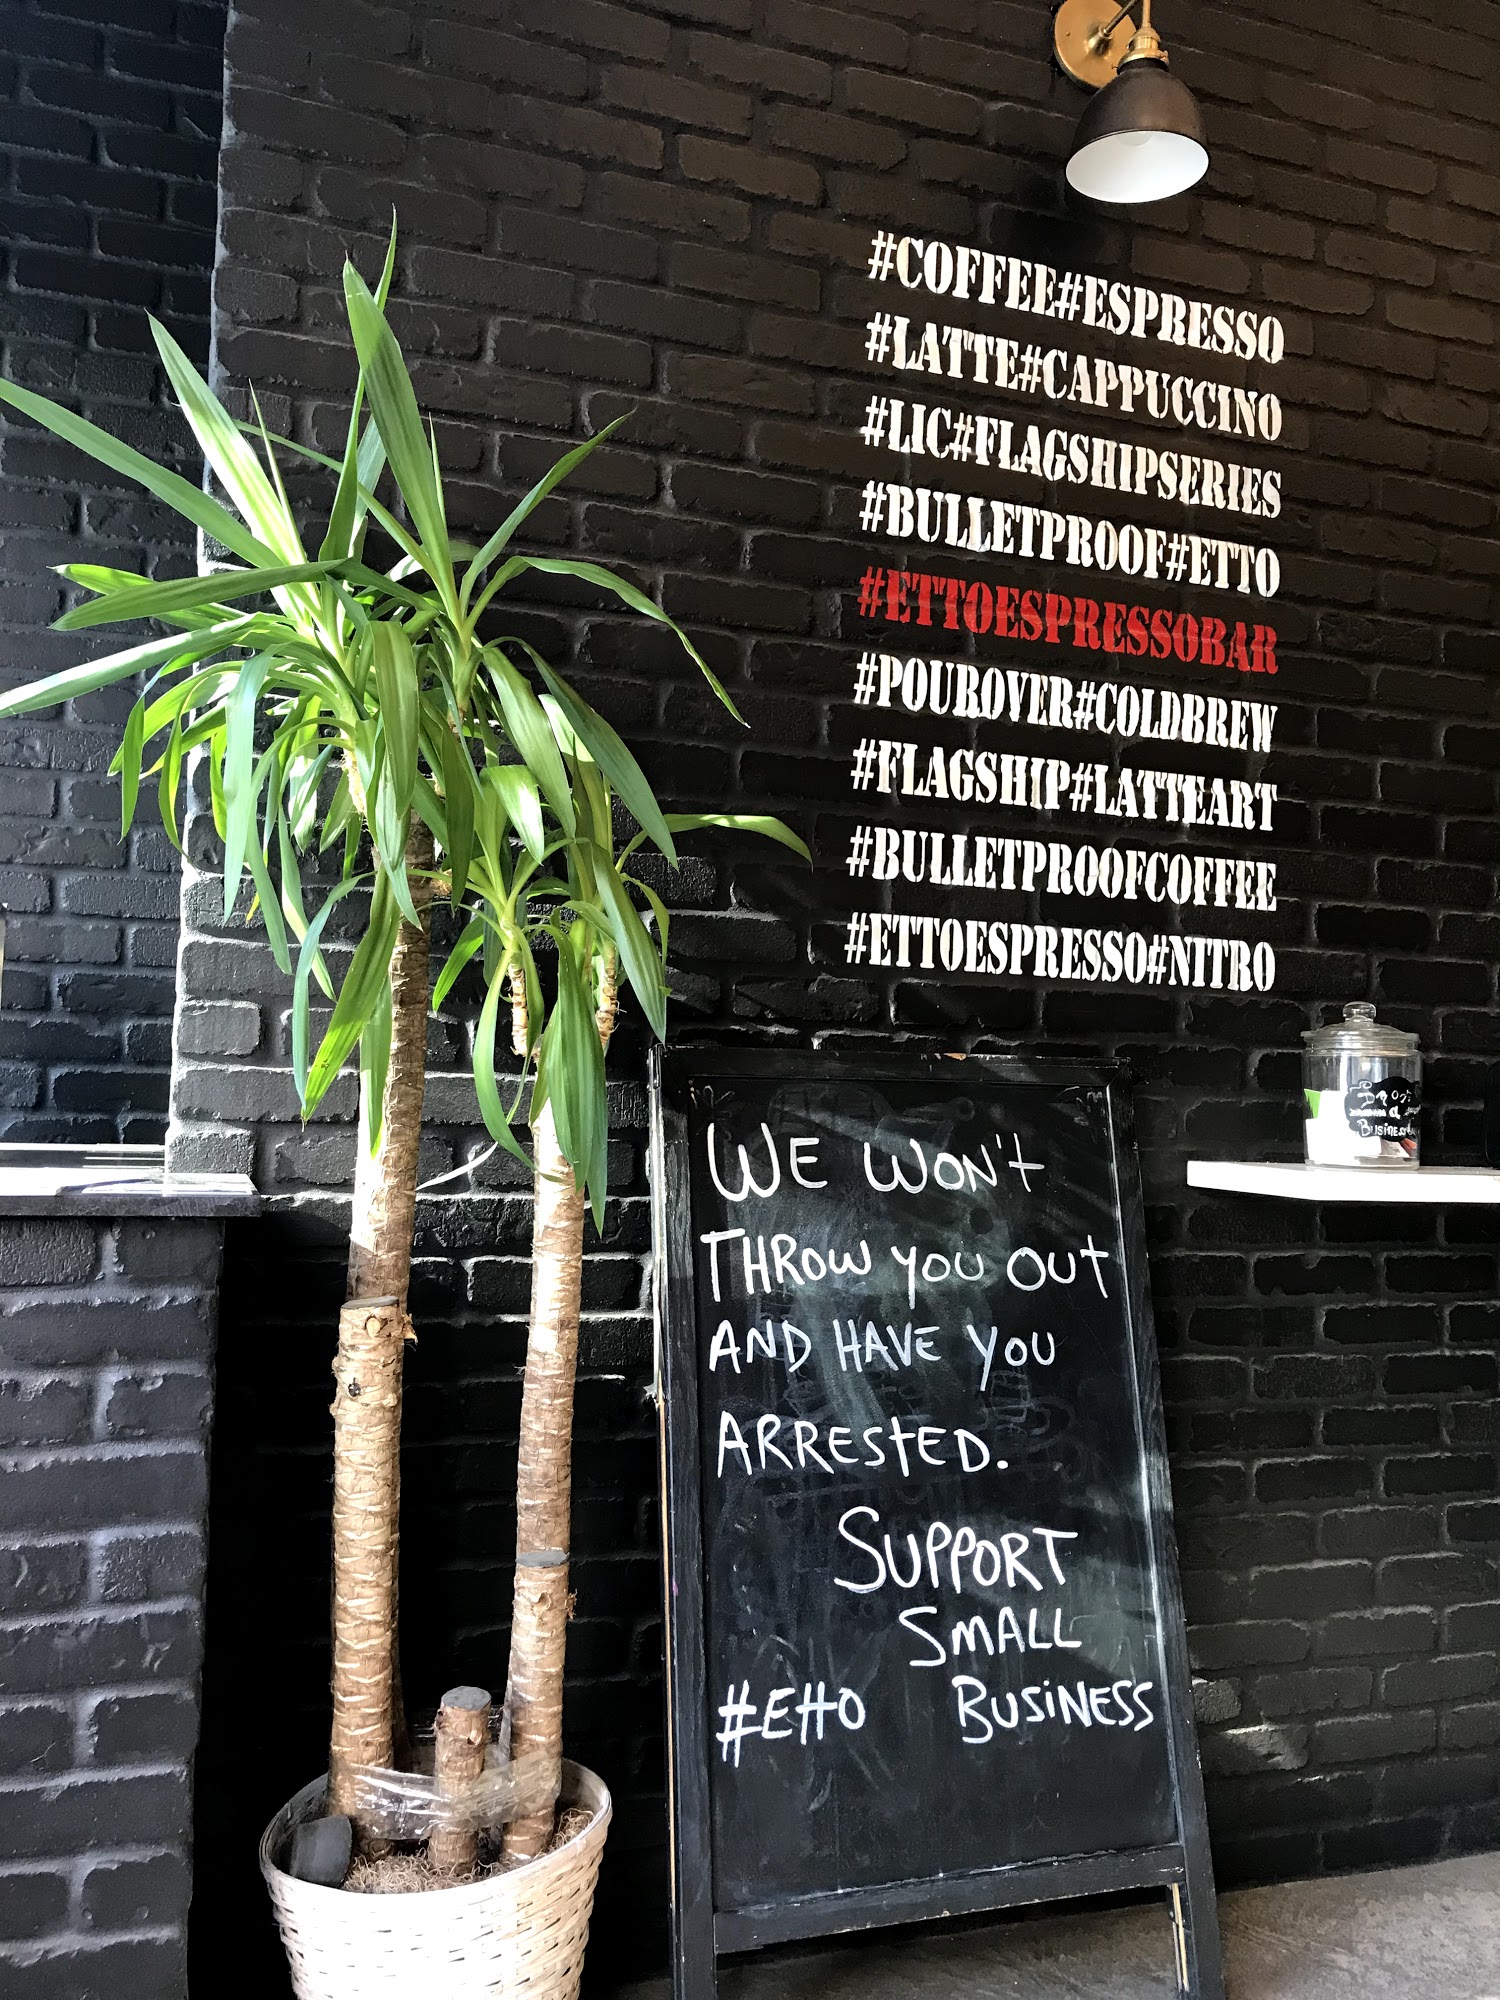 #COFFEE#ESPRESSO
#LATTE#CAPPUCCINO
#LIC#FLAGSHIPSERIES
#BULLETPROOF#ETTO
#ETTOESPRESSOBAR
#POUROVER#COLDBREW
#FLAGSHIP#LATTEART
#BULLETPROOFCOFFEE
#ETTOESPRESSO#NITRO
WE WON'T
THROW YOU OUT
AND HAVE YOU
ARRESTED.
SUPPORT
SMALL
#ETTO BUSINESS
a
Business